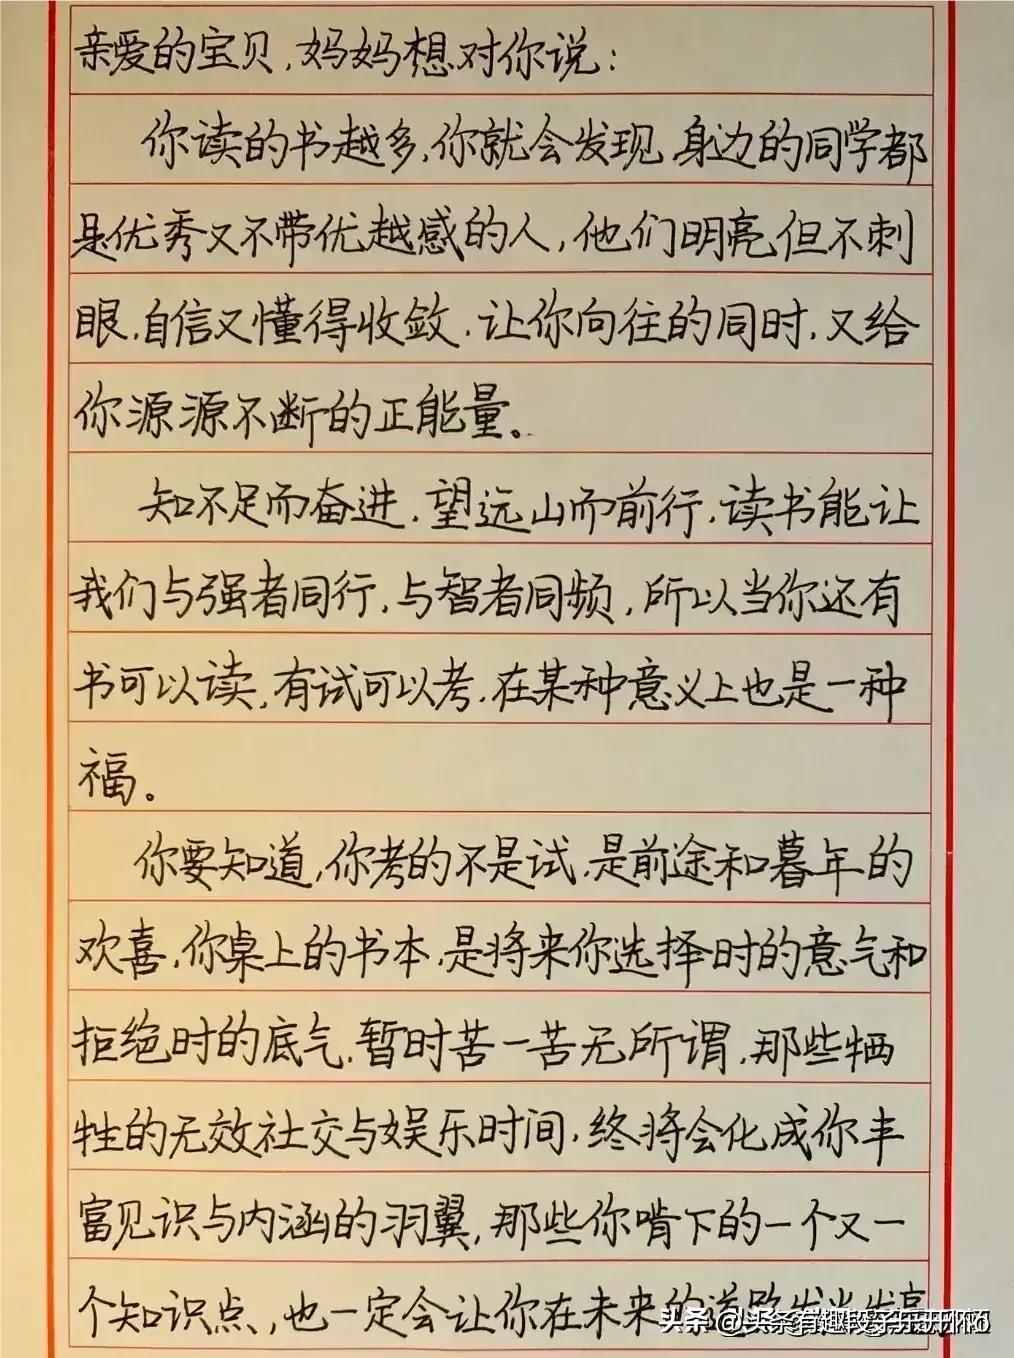 亲爱的宝贝,妈妈想对你说:
你读的书越多,你就会发现,身边的同学都
是优秀又不带优越感的人,他们明亮但不刺
眼,自信又懂得收敛,让你向往的同时,又给
你源源不断的正能量。
知不足而奋进,望远山而前行,读书能让
我们与强者同行,与智者同频,所以当你还有
书可以读,有试可以考,在某种意义上也是一种
福。
你要知道,你考的不是试,是前途和暮年的
欢喜,你桌上的书本,是将来你选择时的意气和
拒绝时的底气,暂时苦一苦无所谓,那些牺
牲的无效社交与娱乐时间,终将会化成你丰
富见识与内涵的羽翼,那些你啃下的一个又一
个知识点,也一定会让你在未来的道路发光发亮
头条@头条有趣段子乐开怀